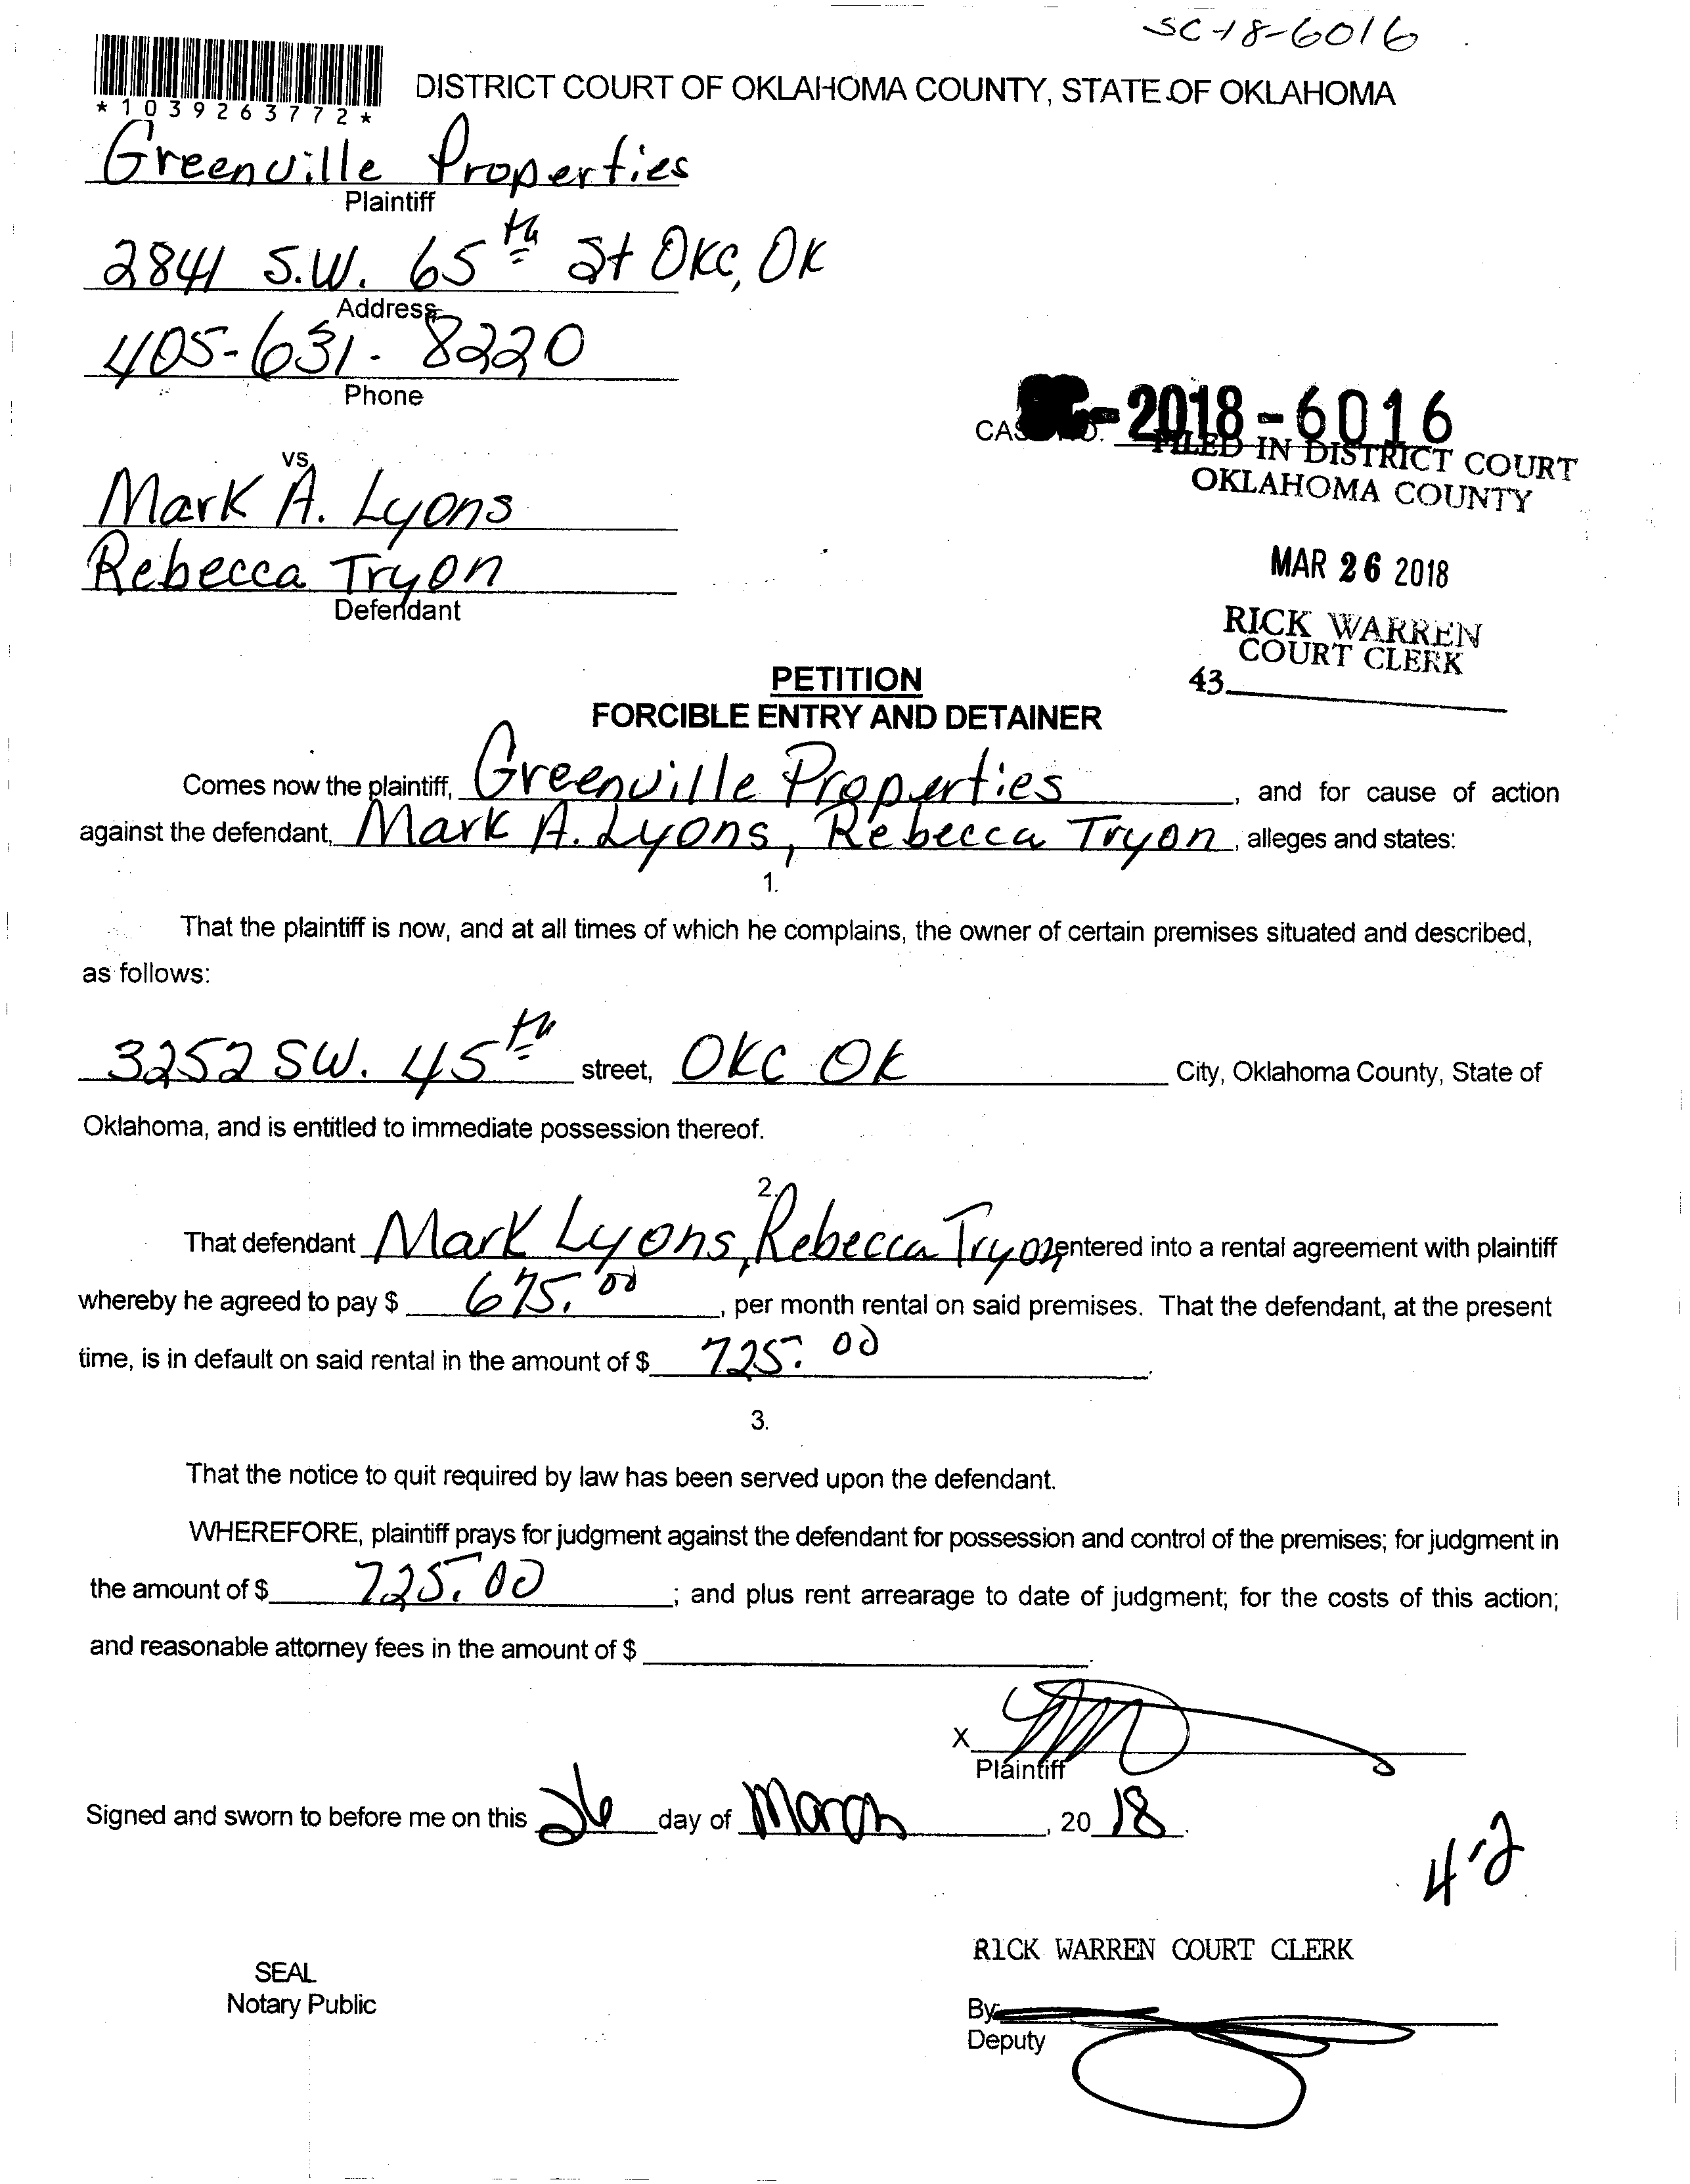 SC-18-6016
*1039263772*
DISTRICT COURT OF OKLAHOMA COUNTY, STATE OF OKLAHOMA
Greenville Properties
Plaintiff
2841 S.W. 65th St OKC, OK
Address
405-631-8220
Phone
SC-2018-6016
FILED IN DISTRICT COURT
OKLAHOMA COUNTY
vs.
Mark A. Lyons
Rebecca Tryon
Defendant
MAR 26 2018
RICK WARREN
COURT CLERK
43
PETITION
FORCIBLE ENTRY AND DETAINER
Comes now the plaintiff, Greenville Properties, and for cause of action
against the defendant, Mark A. Lyons, Rebecca Tryon, alleges and states:
1.
That the plaintiff is now, and at all times of which he complains, the owner of certain premises situated and described,
as follows:
3252 SW. 45th street, OKC OK City, Oklahoma County, State of
Oklahoma, and is entitled to immediate possession thereof.
2.
That defendant Mark Lyons, Rebecca Tryon entered into a rental agreement with plaintiff
whereby he agreed to pay $ 675.00, per month rental on said premises. That the defendant, at the present
time, is in default on said rental in the amount of $ 725.00.
3.
That the notice to quit required by law has been served upon the defendant.
WHEREFORE, plaintiff prays for judgment against the defendant for possession and control of the premises; for judgment in
the amount of $ 725.00; and plus rent arrearage to date of judgment; for the costs of this action;
and reasonable attorney fees in the amount of $ .
X
Plaintiff
Signed and sworn to before me on this 26 day of March, 20 18.
4-2
RICK WARREN COURT CLERK
SEAL
Notary Public
By
Deputy